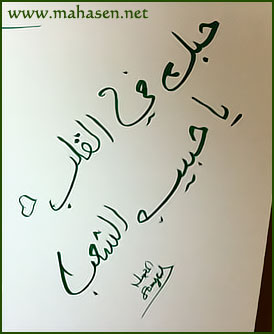 www.mahasen.net
حبك في القلب
يا حبيب الشعب